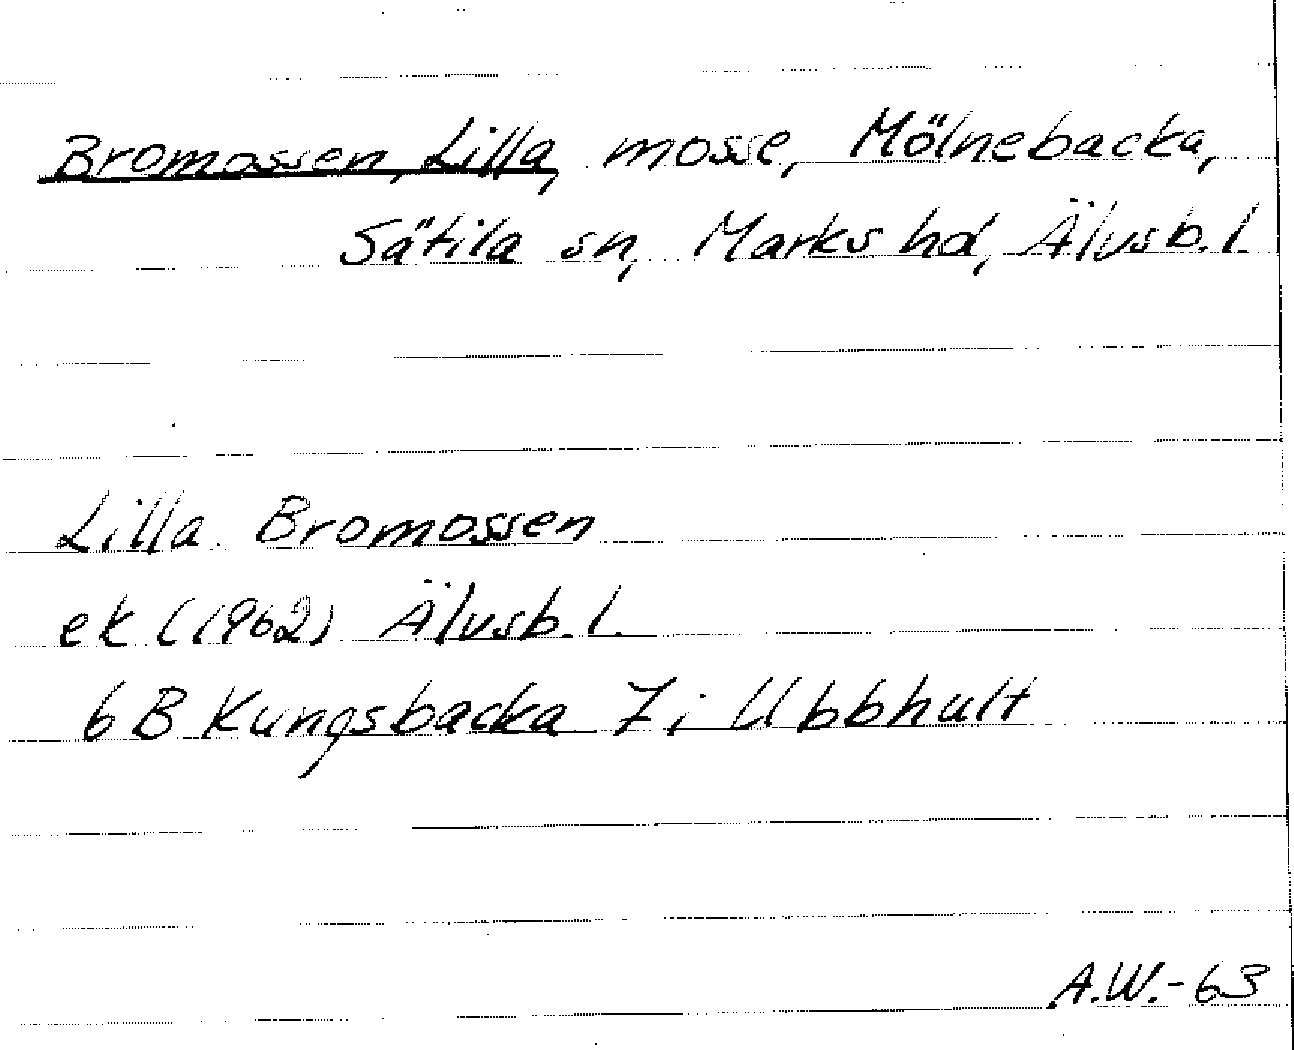 Bromossen, Lilla, mosse, Mölnebacka,
Sätila sn, Marks hd, Älvsb. l
Lilla Bromossen
ek (1962) Älvsb. l.
6 B Kungsbacka 7 i Ubbhult
A.W.-63